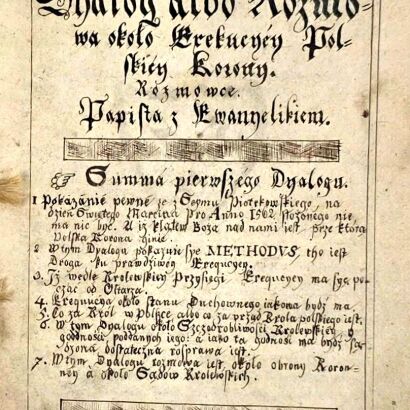 Dyalog albo Rozmo-
wa około Exekucyey Pol-
skiey Korony.
Rozmowce.
Papista z Ewanyelikiem.
Summa pierwszego Dyalogu.
1 Pokázánie pewne że z Seymu Piotrkowskiego, na
dzień Swiętego Marcina Pro Anno 1562 złożonego nie
ma nic być. A iż klątew Boża nąd nami iest, prze którą
Polska Korona ginie.
2 W tym Dyalogu pokazuie sye METHODVS, tho iest
Droga ku prawdźiwey Exequcyey.
3. Iż wedle Krolewskiey Przysięgi Exequcyey ma syę po-
cząc od Ołtarza.
4. Exequucya około stanu Duchownego iakowa bydź ma.
5. Co za Krol w Polsce albo co za przod Krola polskiego iest.
6. W tym Dyalogu około Szczodrobliwości Krolewskiey y
godności, poddanych iego: a iáko tá godność ma bydź sza-
cowana dostateczna rosprawa iest.
7. W tym Dyalogu rozmowa iest około obrony Koron-
ney a około Sądow Krolewskich.